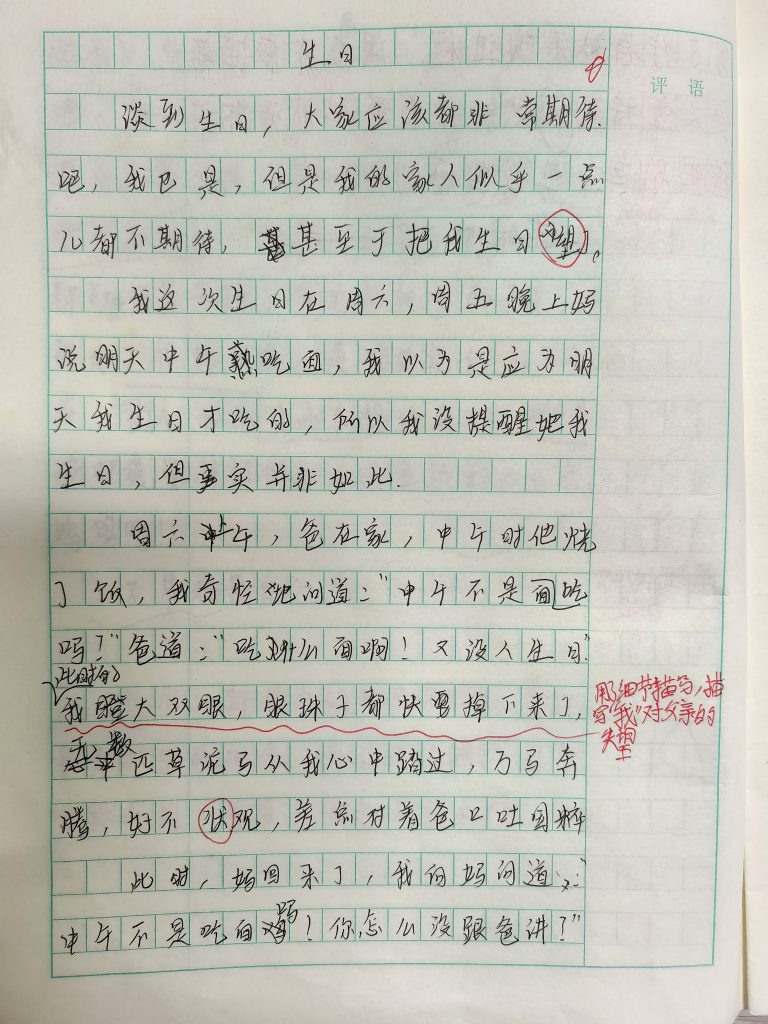 生日
评语
谈到生日，大家应该都非常期待
吧，我也是，但是我的家人似乎一点
儿都不期待，甚至于把我生日忘了。
我这次生日在周六，周五晚上妈
说明天中午吃面，我以为是应为明
天我生日才吃的，所以我没提醒她我
生日，但事实并非如此.
周六中午，爸在家，中午时他烧
了饭，我奇怪地问道：“中午不是面吃
吗！”爸道：“吃什么面啊！又没人生日”
此时的
我瞪大双眼，眼珠子都快要掉下来了，
用了细节描写，描
写“我”对父亲的
失望
无数匹草泥马从我心中踏过，万马奔
腾，好不状观，差点对着爸口吐国粹
此时，妈回来了，我向妈问道：“
中午不是吃面吗！你怎么没跟爸讲？”